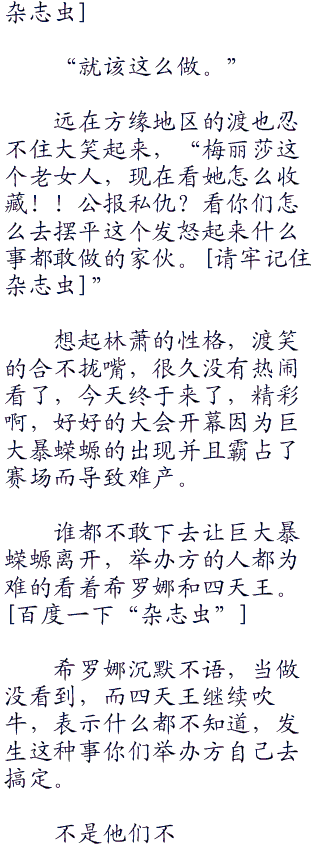 杂志虫]
“就该这么做。”
远在方缘地区的渡也忍
不住大笑起来，“梅丽莎这
个老女人，现在看她怎么收
藏！！公报私仇？看你们怎
么去摆平这个发怒起来什么
事都敢做的家伙。[请牢记住
杂志虫]”
想起林萧的性格，渡笑
的合不拢嘴，很久没有热闹
看了，今天终于来了，精彩
啊，好好的大会开幕因为巨
大暴蝾螈的出现并且霸占了
赛场而导致难产。
谁都不敢下去让巨大暴
蝾螈离开，举办方的人都为
难的看着希罗娜和四天王。
[百度一下“杂志虫”]
希罗娜沉默不语，当做
没看到，而四天王继续吹
牛，表示什么都不知道，发
生这种事你们举办方自己去
搞定。
不是他们不